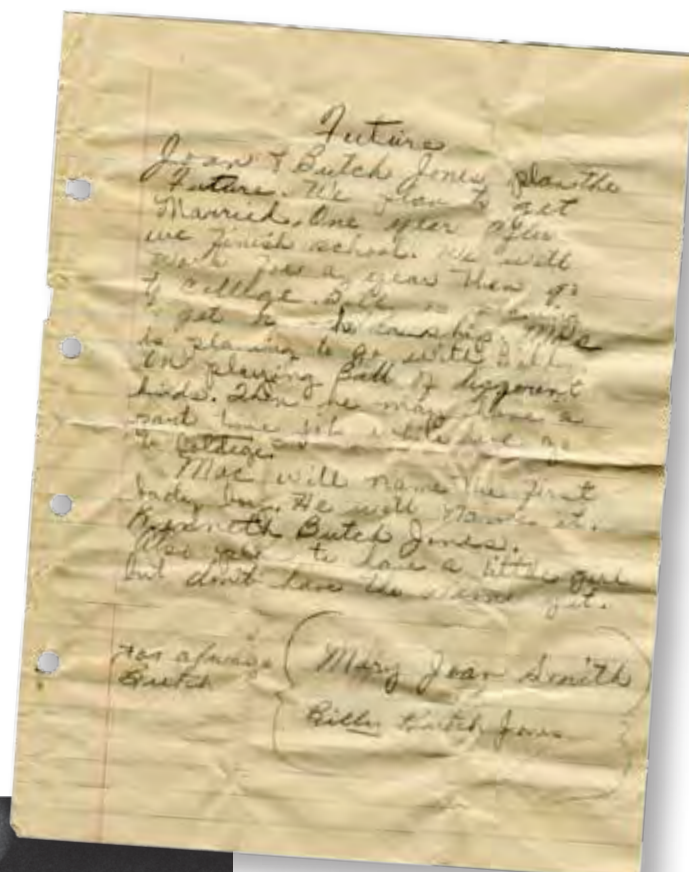 Future
Joan & Butch Jones plan the
Future. We plan to get
Married. One year after
we finish school. We will
work for a year then go
to College. Bill is
to get Mac
is planing to go with Bill.
on playing Ball of different
kinds. Then he may have a
part time job while we go
to Colidge.
Mac will name the first
baby boy. He will name it.
Kenneth Butch Jones.
Also plan to have a little girl
but don't have the name yet.
For always
Butch
Mary Joan Smith
Billy Butch Jones